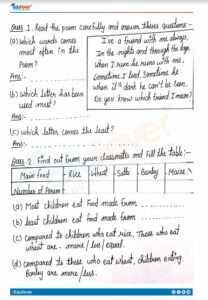 Edufever
Ques 1. Read the poem carefully and answer theses questions:-
(a) Which words comes
most often in the
Poem?
Ans:-
(b) Which letter has been
used most?
Ans:-
(c) Which letter comes the least?
Ans:-
I've a friend with me always,
In the nights and through the days.
When I run he runs with me,
Sometimes I lead, Sometimes he.
when it's dark he can't be seen.
Do you know which friend I mean?
Ques 2. Find out from your classmates and fill the table:-
Main food Rice Wheat Barley Maize
Number of Person
(a) Most children eat food made from
(b) least children eat food made from
(c) Compared to children who eat rice, Those who eat
wheat are - more / les / equal.
(d) Compared to those who eat wheat, children eating
Barley are more / less.
/Edufever